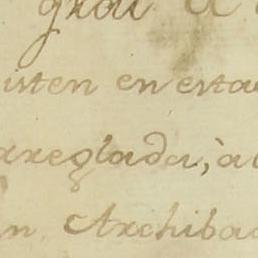 isten en esta
areglada, à
n Archiba